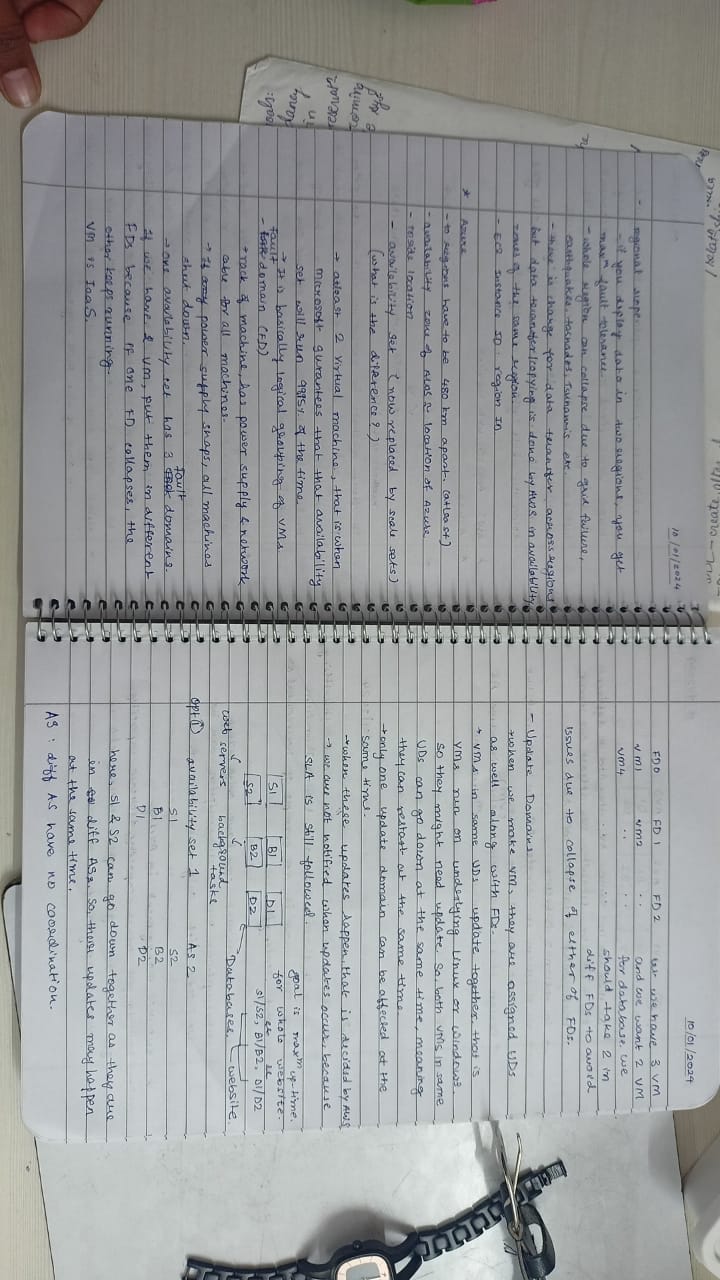 10/01/2024
- regional scope.
- if you deploy data in two regions, you get
maxm fault tolerance.
- whole region can collapse due to grid failure,
earthquakes, tornados, Tsunamis etc.
- there is charge for data transfer across regions
but data transfer/copying is done by AWS in availability
zones of the same region.
- EC2 Instance ID: region in
* Azure
- to regions have to be 480 km apart. (atleast)
- availability zone of AWS ≈ location of Azure
- inside location
- availability set (now replaced by scale sets)
(what is the difference?)
→ atleast 2 virtual machine, that is when
Microsoft gurantees that that availability
set will run 99.95% of the time.
→ It is basically logical grouping of VMs
- fault domain (FD)
→ rack of machine, has power supply & network
able for all machines.
→ If any power supply snaps, all machines
shut down.
→ one availability set has 3 fault domains.
If we have 2 VM, put them in different
FDs because if one FD collapses, the
other keeps running.
VM is IaaS.
10/01/2024
FD0 FD1 FD2 let we have 3 VM
VM1 VM2 .. and we want 2 VM
VM4 .. .. for database. we
.. .. should take 2 in
diff FDs to avoid
issues due to collapse of either of FDs.
- Update Domains
→ when we make VM, they are assigned UDs
as well along with FDs.
→ VMs in same UDs update together, that is
VMs run on underlying Linux or Windows
so they might need update, so both VMs in same
UDs can go down at the same time, meaning
they can restart at the same time.
→ only one update domain can be affected at the
same time.
→ when these updates happen, that is decided by AWS
→ we are not notified when updates occur, because
SLA is still followed.
goal is maxm up time.
for whole website.
S1 B1 D1
S1/S2, B1/B2, D1/D2
S2 B2 D2
website
web servers background tasks Databases
opt ① availability set 1 AS 2
S1 S2
B1 B2
D1 D2
here, S1 & S2 can go down together as they are
in diff ASs. so, there updates may happen
at the same time.
AS: diff AS have no coordination.